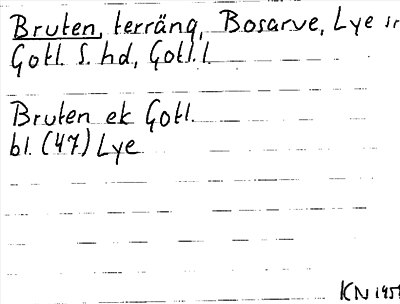 Bruten, terräng, Bosarve, Lye sn
Gotl. S. hd, Gotl. l.
Bruten ek Gotl.
bl. (47) Lye
KN 195